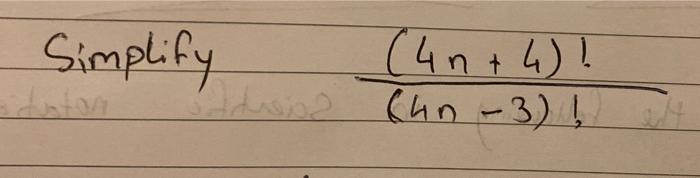 Simplify (4n + 4)!
(4n - 3)!